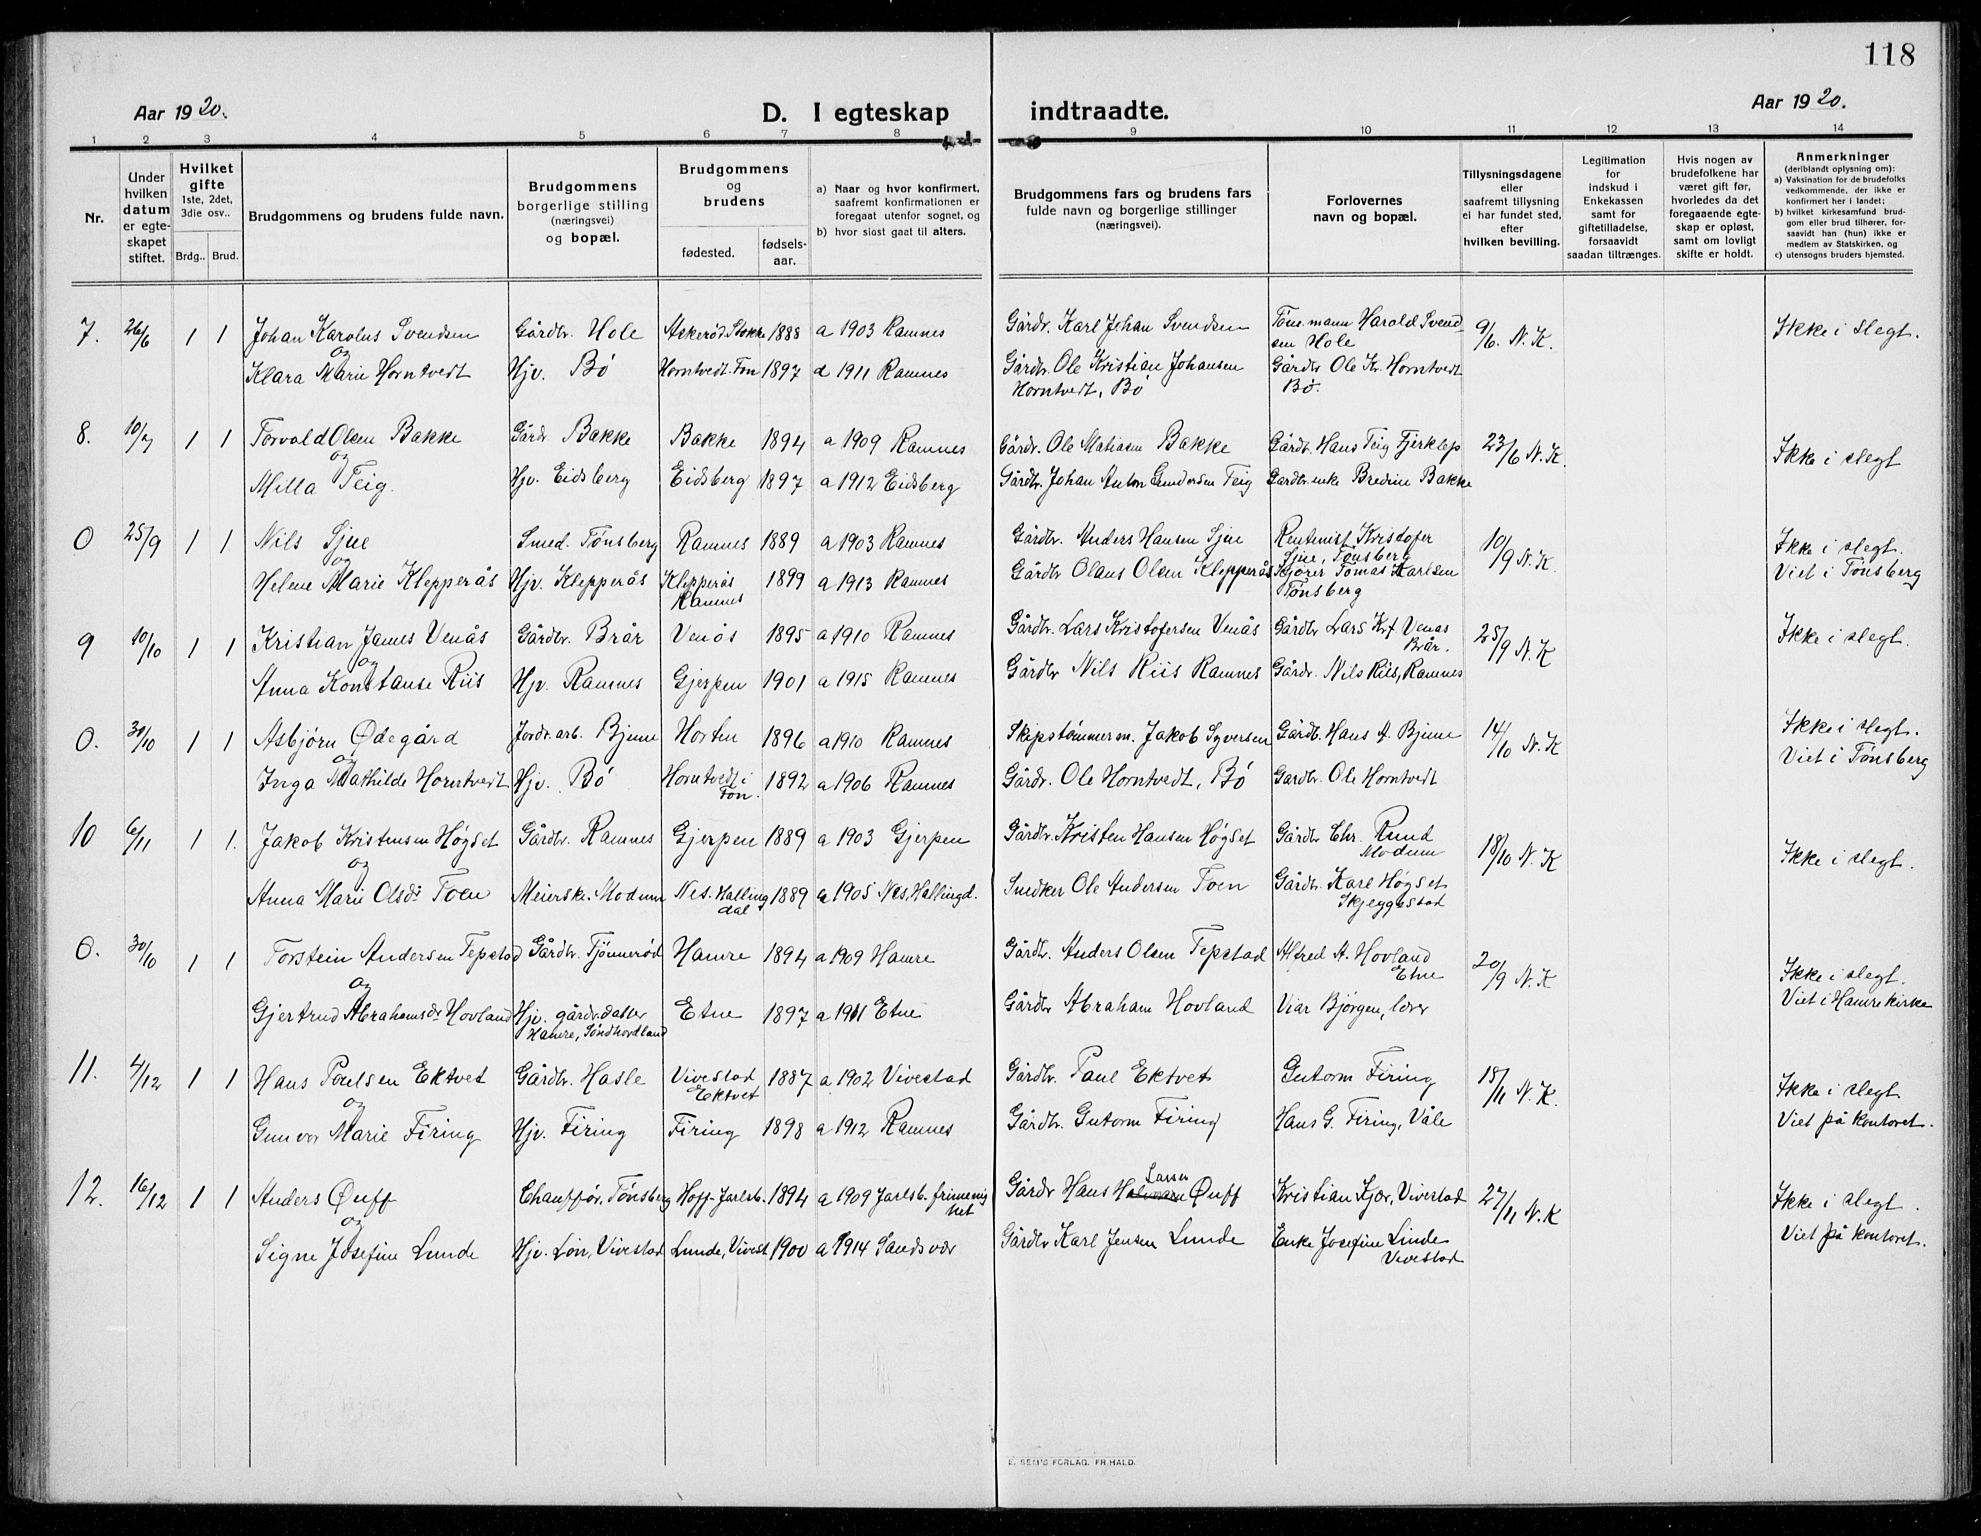 118
Aar 1920.
D. I egteskap indtraadte.
Aar 1920.
1 2 3 4 5 6 7 8 9 10 11 12 13 14
Nr.
Under hvilken datum er egteskapet stiftet.
Hvilket gifte 1ste, 2det, 3die osv..
Brdg.. Brud.
Brudgommens og brudens fulde navn.
Brudgommens borgerlige stilling (næringsvei) og bopæl.
Brudgommens og brudens
fødested. fødselsaar.
a) Naar og hvor konfirmert, saafremt konfirmationen er foregaat utenfor sognet, og
b) hvor sidst gaat til alters.
Brudgommens fars og brudens fars fulde navn og borgerlige stillinger (næringsvei).
Forlovernes navn og bopæl.
Tillysningsdagene eller saafremt tillysning ei har fundet sted, efter hvilken bevilling.
Legitimation for indskud i Enkekassen samt for giftetilladelse, forsaavidt saadan tiltrænges.
Hvis nogen av brudefolkene har været gift før, hvorledes da det foregaaende egteskap er opløst, samt om lovligt skifte er holdt.
Anmerkninger (deriblandt oplysning om):
a) Vaksination for de brudefolks vedkommende, der ikke er konfirmert her i landet;
b) hvilket kirkesamfund brudgom eller brud tilhører, forsaavidt han (hun) ikke er medlem av Statskirken, og
c) utensogns bruders hjemsted.
7. 26/6 1 1 Johan Karolus Svendsen Gårdbr. Hole Askerød Stokke 1888 a 1903 Ramnes Gårdr. Karl Johan Svendsen Tømmermann Harold Svendsen Hole 9/6. N. K. Ikke i slegt.
og
Klara Marie Horntvedt Hjv. Bø Horntvedt. Fon 1897 d 1911 Ramnes Gårdr. Ole Kristian Johansen Horntvedt, Bø Gårdbr Ole Kr. Horntvedt Bø.
8. 10/7 1 1 Torvald Olsen Bakke Gårdr Bakke Bakke 1894 a 1909 Ramnes Gårdr. Ole Matiasen Bakke Gårdbr. Hans Teig Fjerklep 23/6 N. K. Ikke i slegt
og
Milla Teig. Hjv. Eidsberg Eidsberg 1897 a 1912 Eidsberg Gårdbr. Johan Anton Gundersen Teig Gardbr. enke Bredine Bakke
0 25/9 1 1 Nils Sjue Smed. Tønsberg Ramnes 1889 a 1903 Ramnes Gårdbr. Anders Hansen Sjue Rentenist Kristofer Sjue, Tønsberg 10/9 N. K. Ikke i slegt.
og
Helene Marie Klepperås Hjv. Klepperås Klepperås Ramnes 1899 a 1913 Ramnes Gårdbr Olaus Olsen Klepperås Kjører Tomas Karlsen Tønsberg Viet i Tønsberg
9 10/10 1 1 Kristian James Venås Gårdbr. Brår Venås 1895 a 1910 Ramnes Gårdbr. Lars Kristofersen Venås Gårdbr Lars Krf Venås Brår. 25/9 N. K Ikke i slegt.
og
Anna Konstanse Riis Hjv. Ramnes Gjerpen 1901 a 1915 Ramnes Gårdbr Nils Riis Ramnes Gårdr. Nils Riis, Ramnes
0. 30/10 1 1 Asbjørn Ødegård Jordr. arb. Bjune Horten 1896 a 1910 Ramnes Skipstømmerm. Jakob Syversen Gårdb. Hans A. Bjune 14/10 N. K Ikke i slegt.
og
Inga Mathilde Horntvedt Hjv. Bø Horntvedt i Fon. 1892 a 1906 Ramnes Gårdr. Ole Horntvedt, Bø Gardbr. Ole Horntvedt Viet i Tønsberg
10 6/11 1 1. Jakob Kristensen Høgset Gårdbr. Ramnes Gjerpen 1889 a 1903 Gjerpen Gårdbr. Kristen Hansen Høgset Gårdbr Chr. Rund Modum 18/10 N. K Ikke i slegt.
og
Anna Marie Olsdr Toen Meierske. Modum Nes. Hallingdal 1889 a 1905 Nes, Hallingd. Snedker Ole Andersen Toen Gårdbr. Karl Høgset Skjeggestad
0. 30/10 1 1 Torstein Andersen Tepstad Gårdbr. Tjønnerød Hamre 1894 a 1909 Hamre Gårdbr. Anders Olsen Tepstad Alfred A. Hovland Etne 20/9 N. K Ikke i slegt.
og
Gjertrud Abrahamsdr Hovland Hjv. gårdr. datter Hamre, Søndhordland Etne 1897 a 1911 Etne Gårdbr Abraham Hovland Viar Bjørgen, lærer Viet i Hamre kirke
11. 4/12 1 1 Hans Poulsen Ektvet Gårdbr. Hasle Vivestad Ektvet 1887 a 1902 Vivestad Gårdbr. Paul Ektvet Gutorm Firing 18/11 N. K. Ikke i slegt
og
Gunvor Marie Firing Hjv. Firing Firing 1898 a 1912 Ramnes Gårdbr. Gutorm Firing Hans G. Firing, Våle Viet på kontoret.
12. 16/12 1 1 Anders Quff Chauffør. Tønsberg Hoff, Jarlsb. 1894 a 1909 Jarlsb. frimenighet Gårdr Hans Larsen Quff Kristian Kjær, Vivestad 27/11 N. K Ikke i slegt.
og
Signe Josefine Lunde Hjv. Løn, Vivestad Lunde, Vivest 1900 a 1914 Sandsvær Gårdbr Karl Jensen Lunde Enke Josefine Linde Vivestad Viet på kontoret.
E. SEM'S FORLAG. FR.HALD.